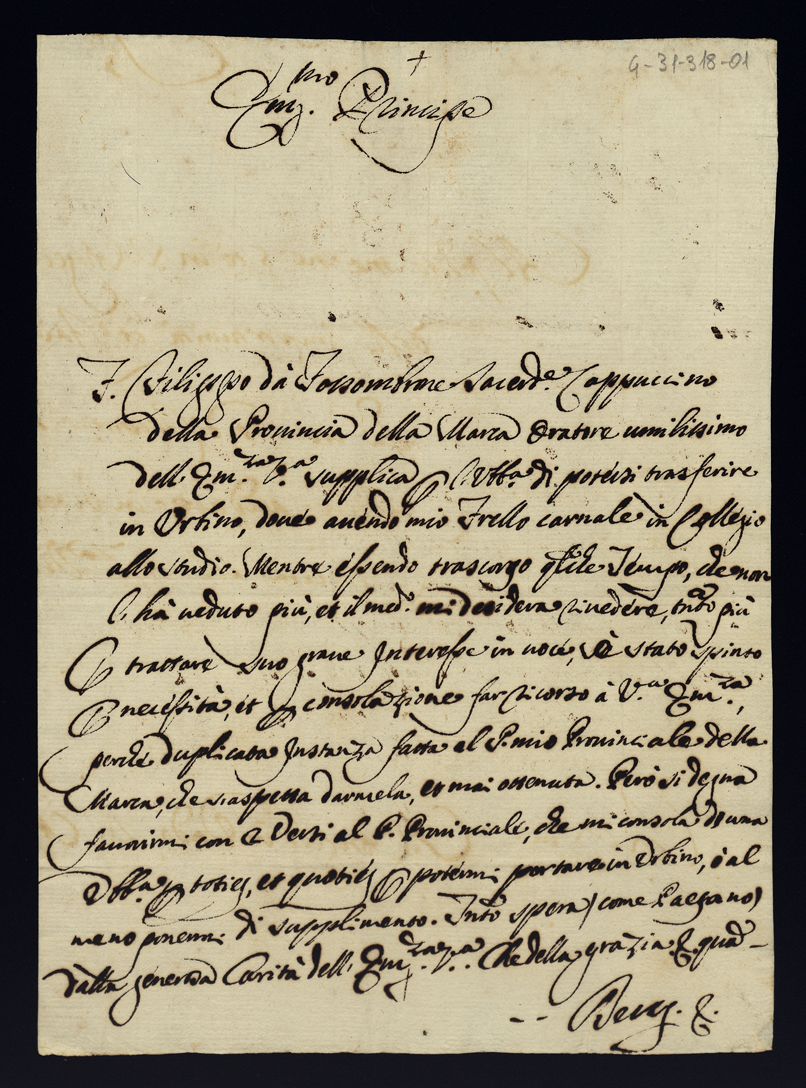 G-31-318-01
+
Em.mo Principe
F. Filippo dà Fossombrone Sacerd.e Cappuccino
della Provincia della Marca Oratore umilissimo
dell'Em.za V.a supplica l'Ubb.a di potersi trasferire
in Urbino, dove avendo mio Frello carnale in Collegio
allo studio. Mentre essendo trascorso qlche Tempo, che non
l'hà veduto più, et il med.o mi desidera rivedere, tnto più
trattare suo grave Interesse in voce, è stato spinto
necessità, et consolazione far ricorso à V.a Em.za,
perche duplicata Instanza fatta al P. mio Provinciale della
Marca, che s'aspetta darmela, et mai ottenuta. Però si degna
favorirmi con 2 Versi al P. Provinciale, che mi consola d'una
Ubb.a toties, et quoties potermi portare in Urbino, ò al
meno ponermi di supplimento. Tnto spera (come Pafano)
dalla generosa Carità dell'Em.za V.a. Che della grazia &. quā
-- &.